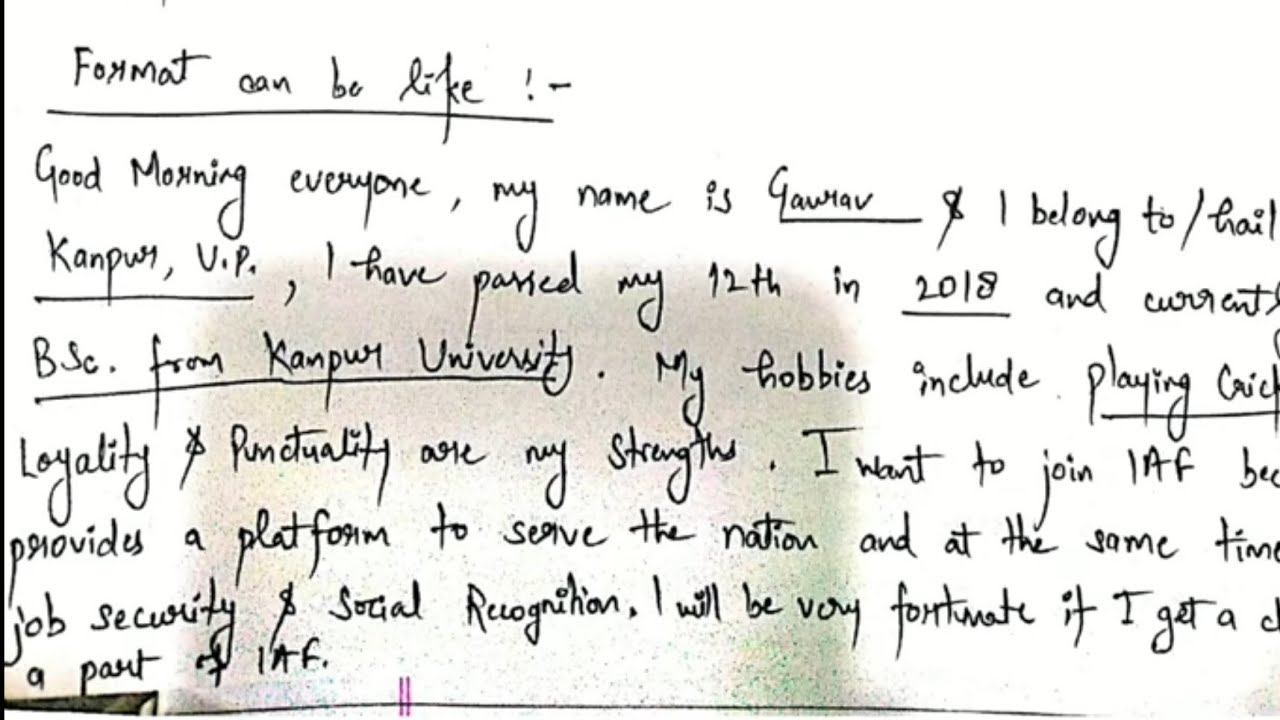 Format can be like :-
Good Morning everyone, my name is Gaurav & I belong to/hail
Kanpur, U.P., I have passed my 12th in 2018 and current
BSc. from Kanpur University. My hobbies include playing Cric
Loyality & Punctuality are my strengths. I want to join IAF bec
provides a platform to serve the nation and at the same time
job security & Social Recognition. I will be very fortunate if I get a c
a part of IAF.